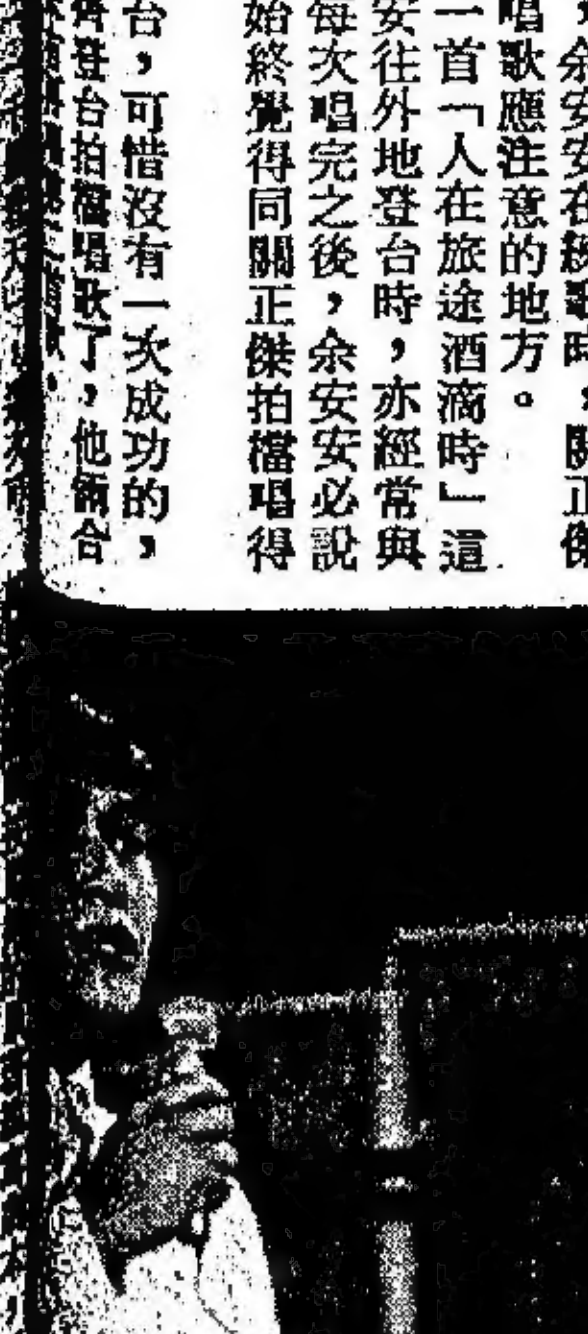 ，余安安在練歌時，關正傑
唱歌應注意的地方。
一首「人在旅途酒滴時」這
安往外地登台時，亦經常與
每次唱完之後，余安安必說
始終覺得同關正傑拍檔唱得
台，可惜沒有一次成功的，
齊登台拍檔唱歌了，他倆合